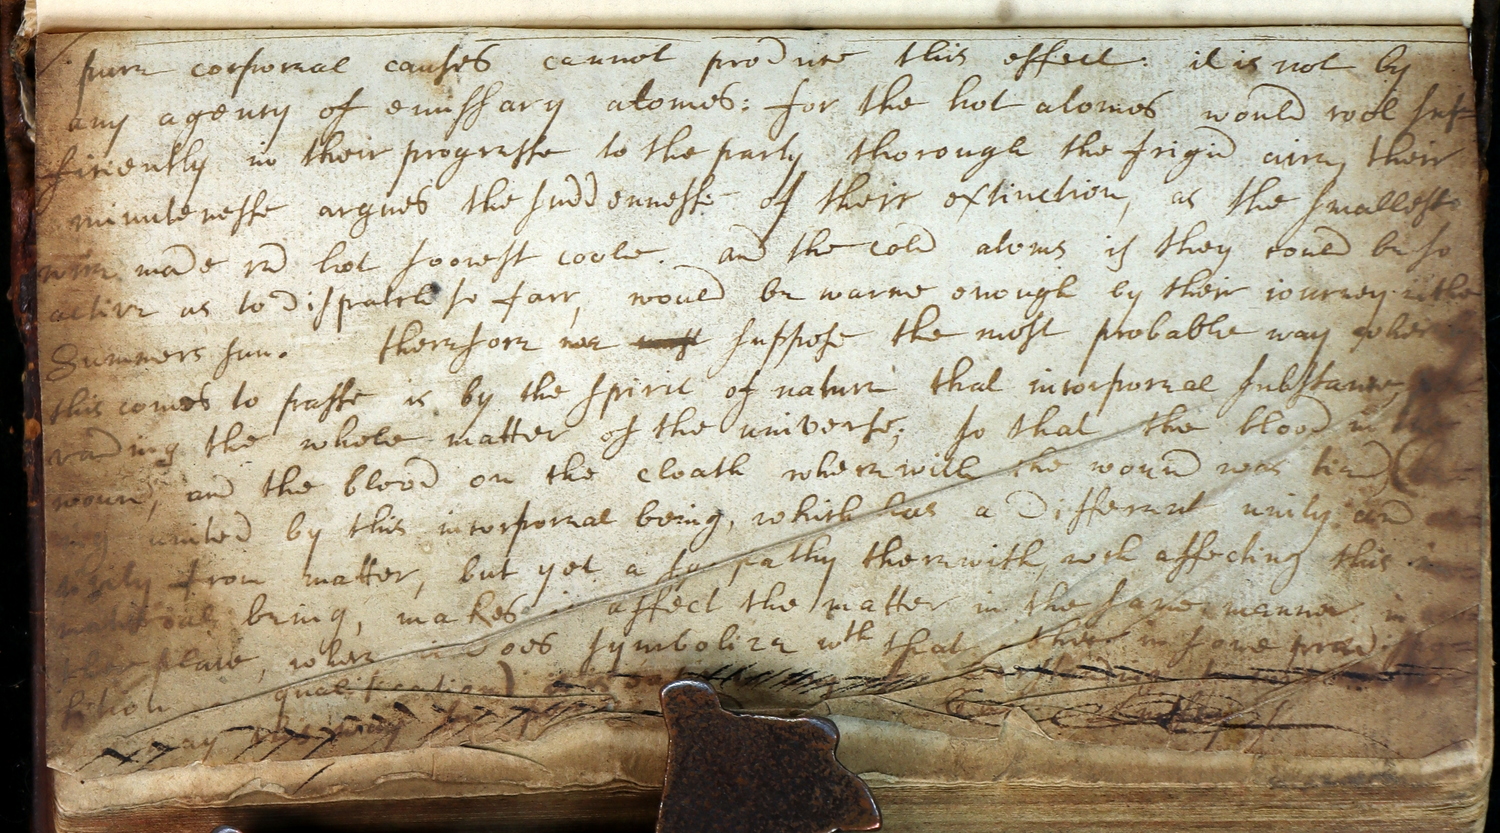 pure corporeal causes cannot produce this effect: it is not by
any agency of emissary atomes: for the hot atomes would cool suf-
ficiently in their progresse to the party thorough the frigid aire, their
minutenesse argues the suddennesse of their extinction, as the smallest
wire made red hot soonest coole. and the cold atoms if they could be so
active as to dispatch so farr, would be warme enough by their journey in the
Summers sun. therefore wee suppose the most probable way wher
this comes to passe is by the spirit of nature that incorporeal substance,
vading the whole matter of the universe; so that the blood in the
wound, and the blood on the cloath wherewith the wound was tied, (be
ing united by this incorporeal being, which has a different unity and
from matter, but yet a sympathy therewith, wch affecting this
being, makes affect the matter in the same manner in
place, wher it does symbolize wth that other in some praedispo-
sition qualification)